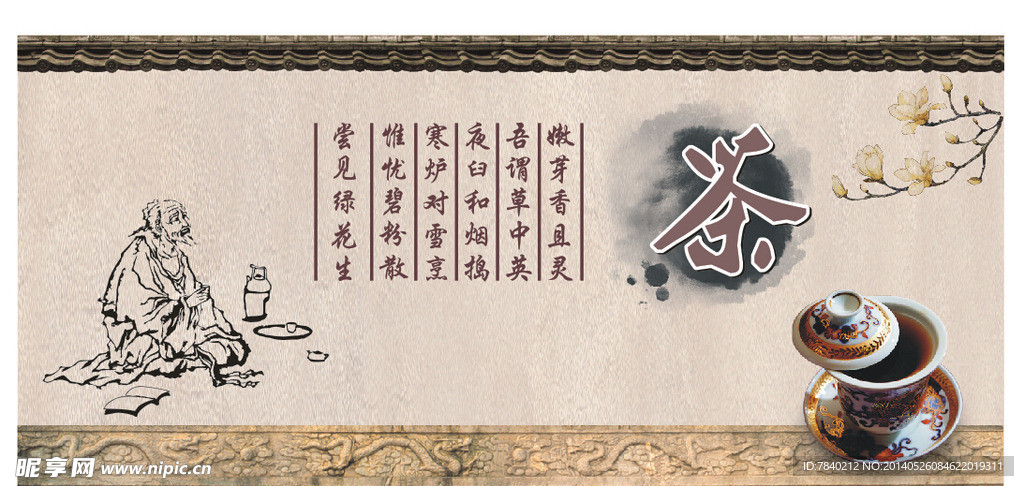 茶
嫩芽香且灵
吾谓草中英
夜臼和烟捣
寒炉对雪烹
惟忧碧粉散
尝见绿花生
昵享网 www.nipic.cn
ID:7840212 NO:20140526084622019311